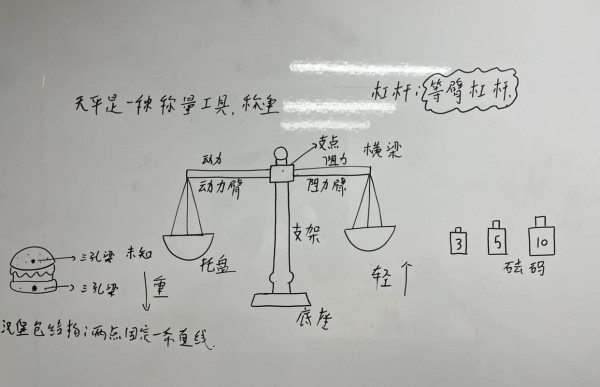 天平是一种称量工具,称重
杠杆:等臂杠杆
支点
动力
阻力
横梁
动力臂
阻力臂
支架
三孔梁
未知
托盘
3
5
10
重
轻
砝码
三孔梁
底座
汉堡包结构:两点固定一条直线